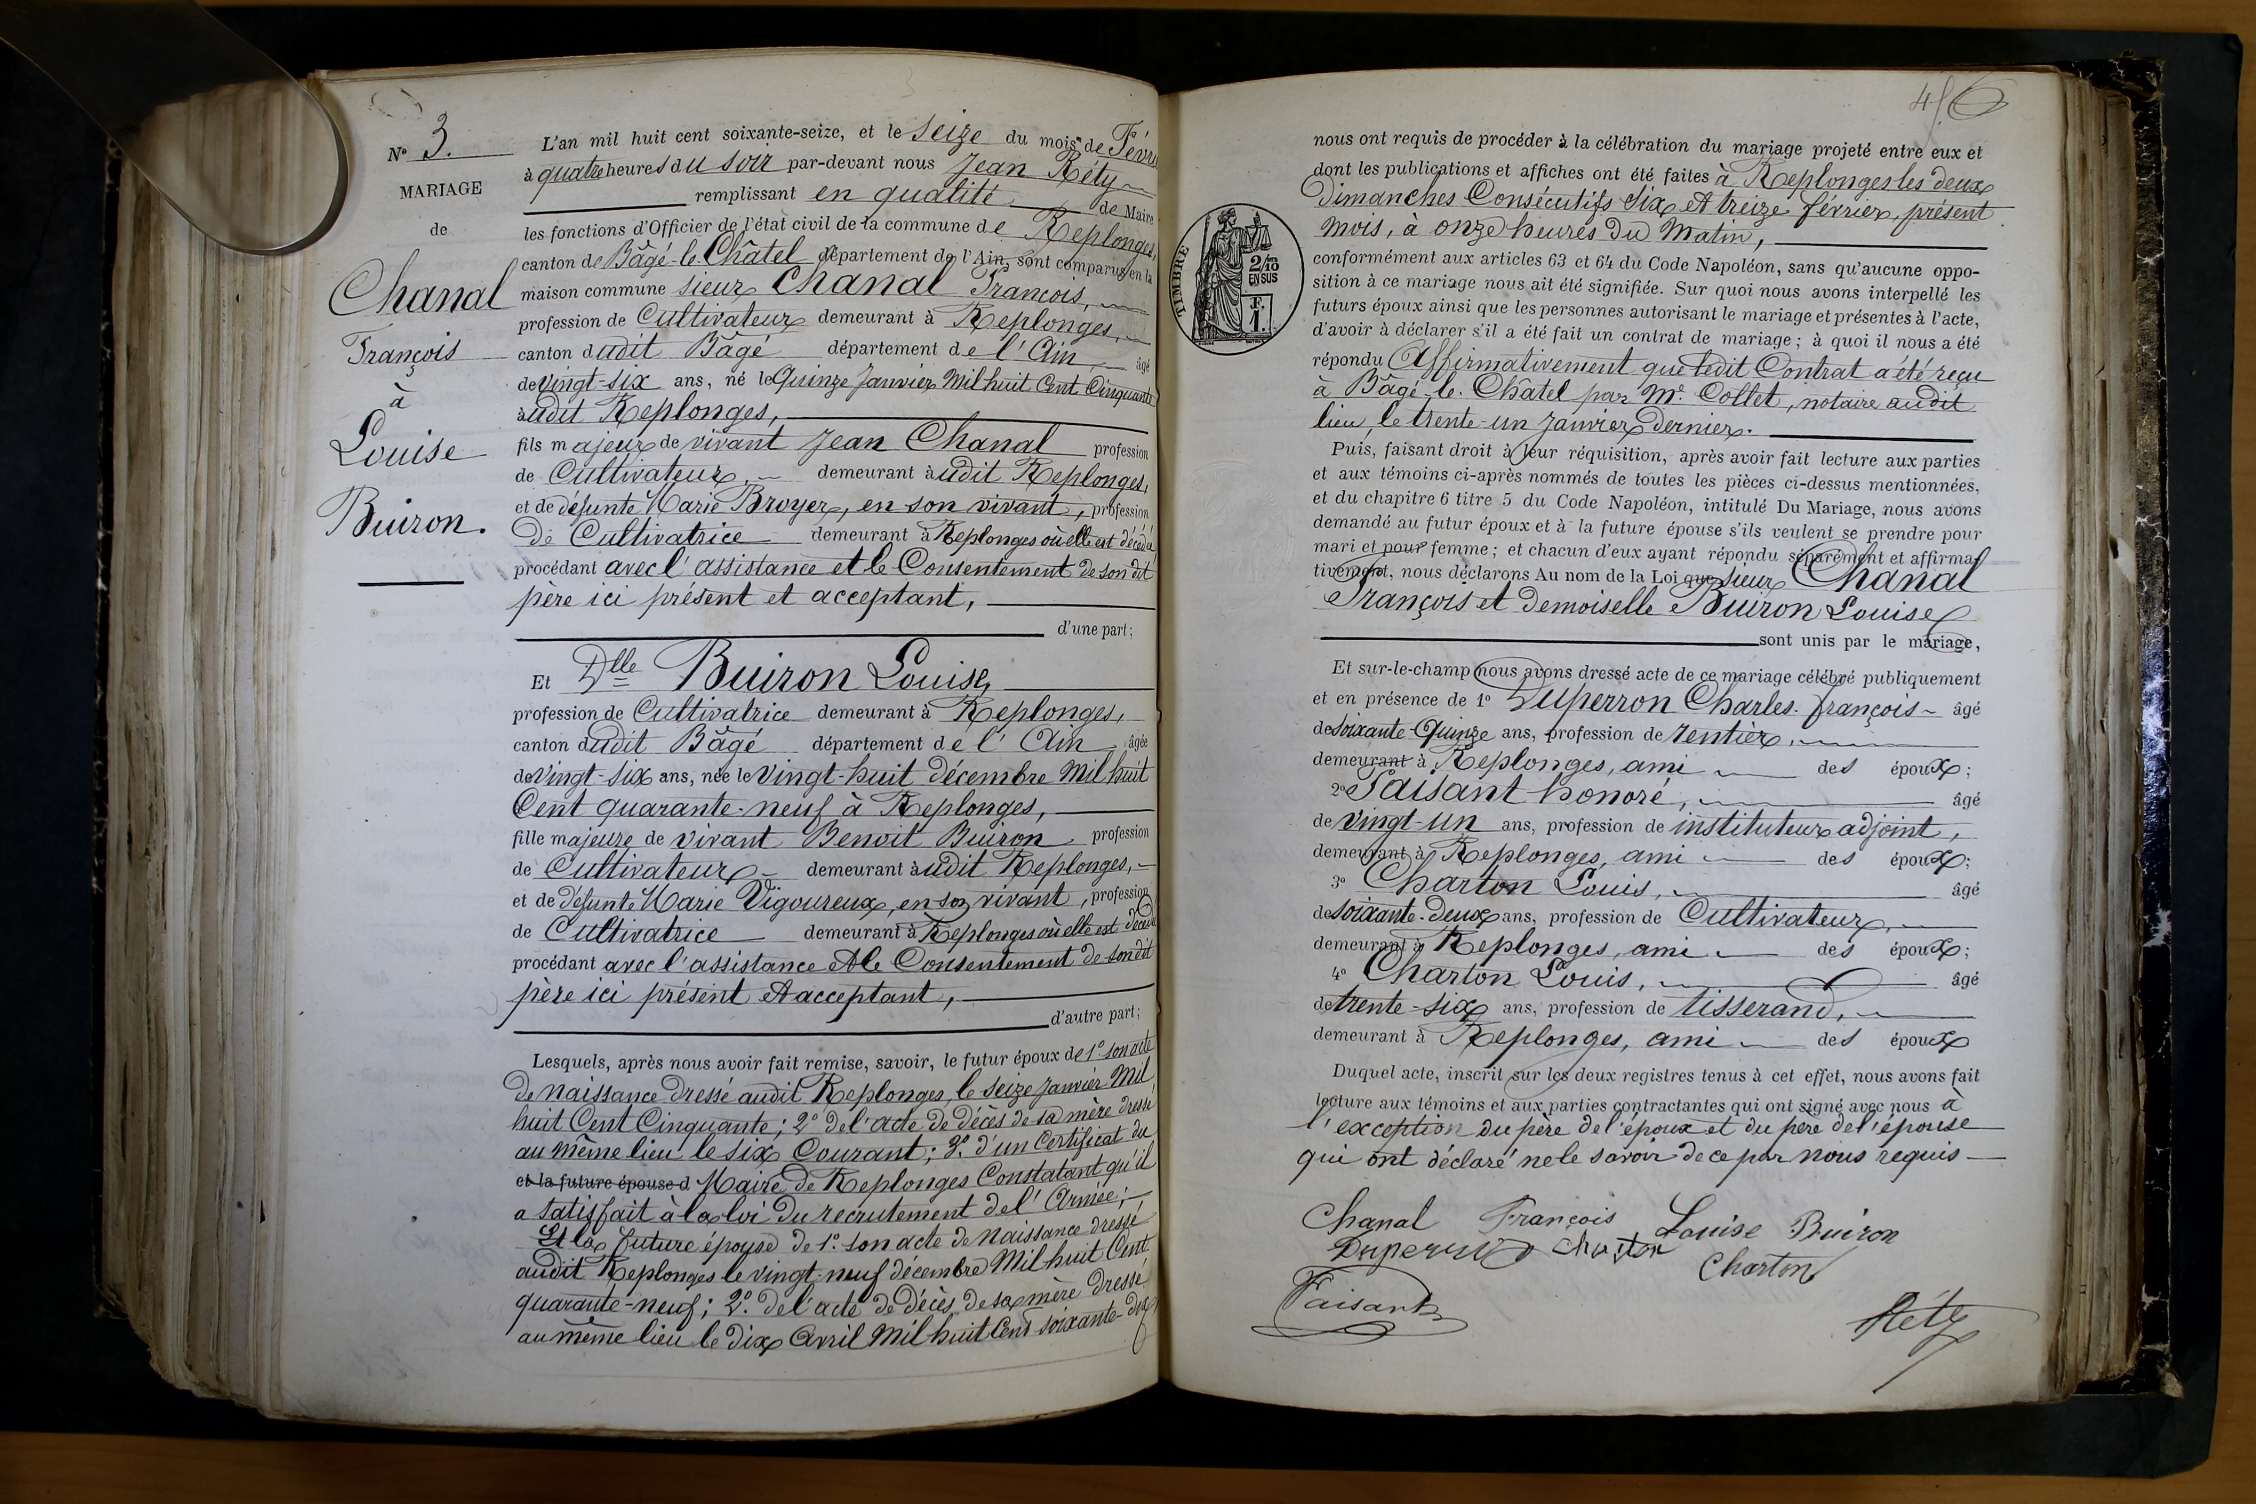 N° 3.
MARIAGE
de
Chanal
François
à
Louise
Buiron.
L'an mil huit cent soixante-seize, et le seize du mois de Févri
à quatre heures du soir par-devant nous Jean Réty
remplissant en qualité de Maire
les fonctions d'Officier de l'état civil de la commune de Replonges,
canton de Bâgé-le-Châtel département de l'Ain, sont comparus en la
maison commune sieur Chanal François,
profession de Cultivateur demeurant à Replonges,
canton dudit Bâgé département de l'Ain, âgé
de vingt-six ans, né le Quinze Janvier Mil huit Cent Cinquante
audit Replonges,
fils majeur de vivant Jean Chanal profession
de Cultivateur, demeurant audit Replonges,
et de défunte Marie Broyer, en son vivant, profession
de Cultivatrice demeurant à Replonges où elle est décédée
procédant avec l'assistance et le Consentement de son dit
père ici présent et acceptant,
d'une part;
Et Dlle Buiron Louise,
profession de Cultivatrice demeurant à Replonges,
canton dudit Bâgé département de l'Ain, âgée
de vingt-six ans, née le vingt-huit décembre Mil huit
Cent quarante-neuf à Replonges,
fille majeure de vivant Benoit Buiron profession
de Cultivateur demeurant audit Replonges,
et de défunte Marie Vigoureux, en son vivant, profession
de Cultivatrice demeurant à Replonges où elle est décédée
procédant avec l'assistance et le Consentement de son dit
père ici présent et acceptant,
d'autre part;
Lesquels, après nous avoir fait remise, savoir, le futur époux de 1° son acte
de naissance dressé audit Replonges, le seize Janvier Mil
huit Cent Cinquante; 2° de l'acte de décès de sa mère dressé
au même lieu le six Courant; 3° d'un Certificat du
et la future épouse d Maire de Replonges Constatant qu'il
a satisfait à la loi du recrutement de l'Armée;
Et la future épouse de 1° son acte de Naissance dressé
audit Replonges le vingt-neuf décembre Mil huit Cent
quarante-neuf; 2° de l'acte de décès de sa mère dressé
au même lieu le dix Avril Mil huit Cent soixante-dix
4
nous ont requis de procéder à la célébration du mariage projeté entre eux et
dont les publications et affiches ont été faites à Replonges les deux
Dimanches Consécutifs Six et treize février, présent
mois, à onze heures du Matin,
TIMBRE
2/10 EN SUS
1 F.
conformément aux articles 63 et 64 du Code Napoléon, sans qu'aucune oppo-
sition à ce mariage nous ait été signifiée. Sur quoi nous avons interpellé les
futurs époux ainsi que les personnes autorisant le mariage et présentes à l'acte,
d'avoir à déclarer s'il a été fait un contrat de mariage; à quoi il nous a été
répondu Affirmativement que ledit Contrat a été reçu
à Bâgé-le-Châtel par Me Collet, notaire audit
lieu, le trente-un Janvier Dernier.
Puis, faisant droit à leur réquisition, après avoir fait lecture aux parties
et aux témoins ci-après nommés de toutes les pièces ci-dessus mentionnées,
et du chapitre 6 titre 5 du Code Napoléon, intitulé Du Mariage, nous avons
demandé au futur époux et à la future épouse s'ils veulent se prendre pour
mari et pour femme; et chacun d'eux ayant répondu séparément et affirma-
tivement, nous déclarons Au nom de la Loi que sieur Chanal
François et Demoiselle Buiron Louise
sont unis par le mariage,
Et sur-le-champ nous avons dressé acte de ce mariage célébré publiquement
et en présence de 1° Duperron Charles-François âgé
de soixante-Quinze ans, profession de rentier,
demeurant à Replonges, ami des époux;
2° Faisant honoré, âgé
de vingt-un ans, profession de instituteur adjoint,
demeurant à Replonges, ami des époux;
3° Charton Louis, âgé
de soixante-deux ans, profession de Cultivateur,
demeurant à Replonges, ami des époux;
4° Charton Louis, âgé
de trente-six ans, profession de tisserand,
demeurant à Replonges, ami des époux
Duquel acte, inscrit sur les deux registres tenus à cet effet, nous avons fait
lecture aux témoins et aux parties contractantes qui ont signé avec nous à
l'exception du père de l'époux et du père de l'épouse
qui ont déclaré ne le savoir de ce par nous requis
Chanal François Louise Buiron
Duperron Charton Charton
Faisant
Réty